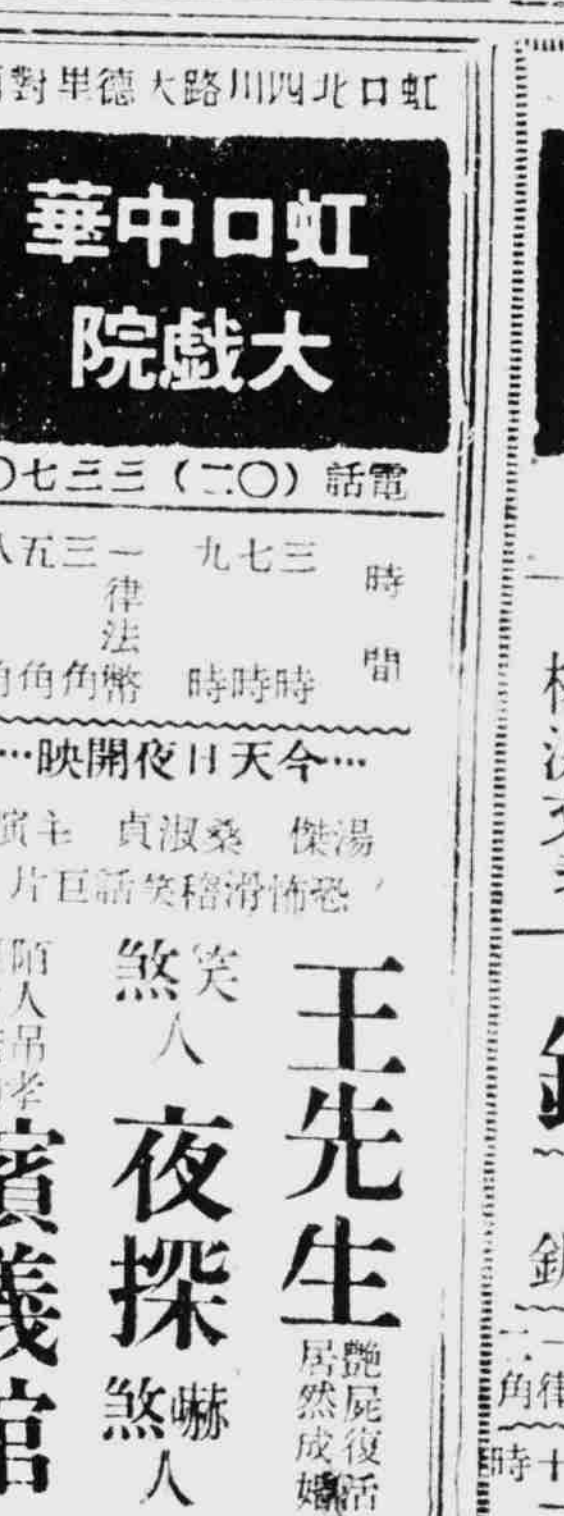 虹口北四川路大德里對
虹口中華
大戲院
電話（〇二）三三七〇
時間
三時 七時 九時
一律法幣
三角 五角
…今天日夜開映…
湯傑 桑淑貞 主演
恐怖滑稽笑話巨片
王先生
艷屍復活
居然成婚
笑煞人
夜探
嚇煞人
陌人吊孝
殯儀館
一律
二角
十時